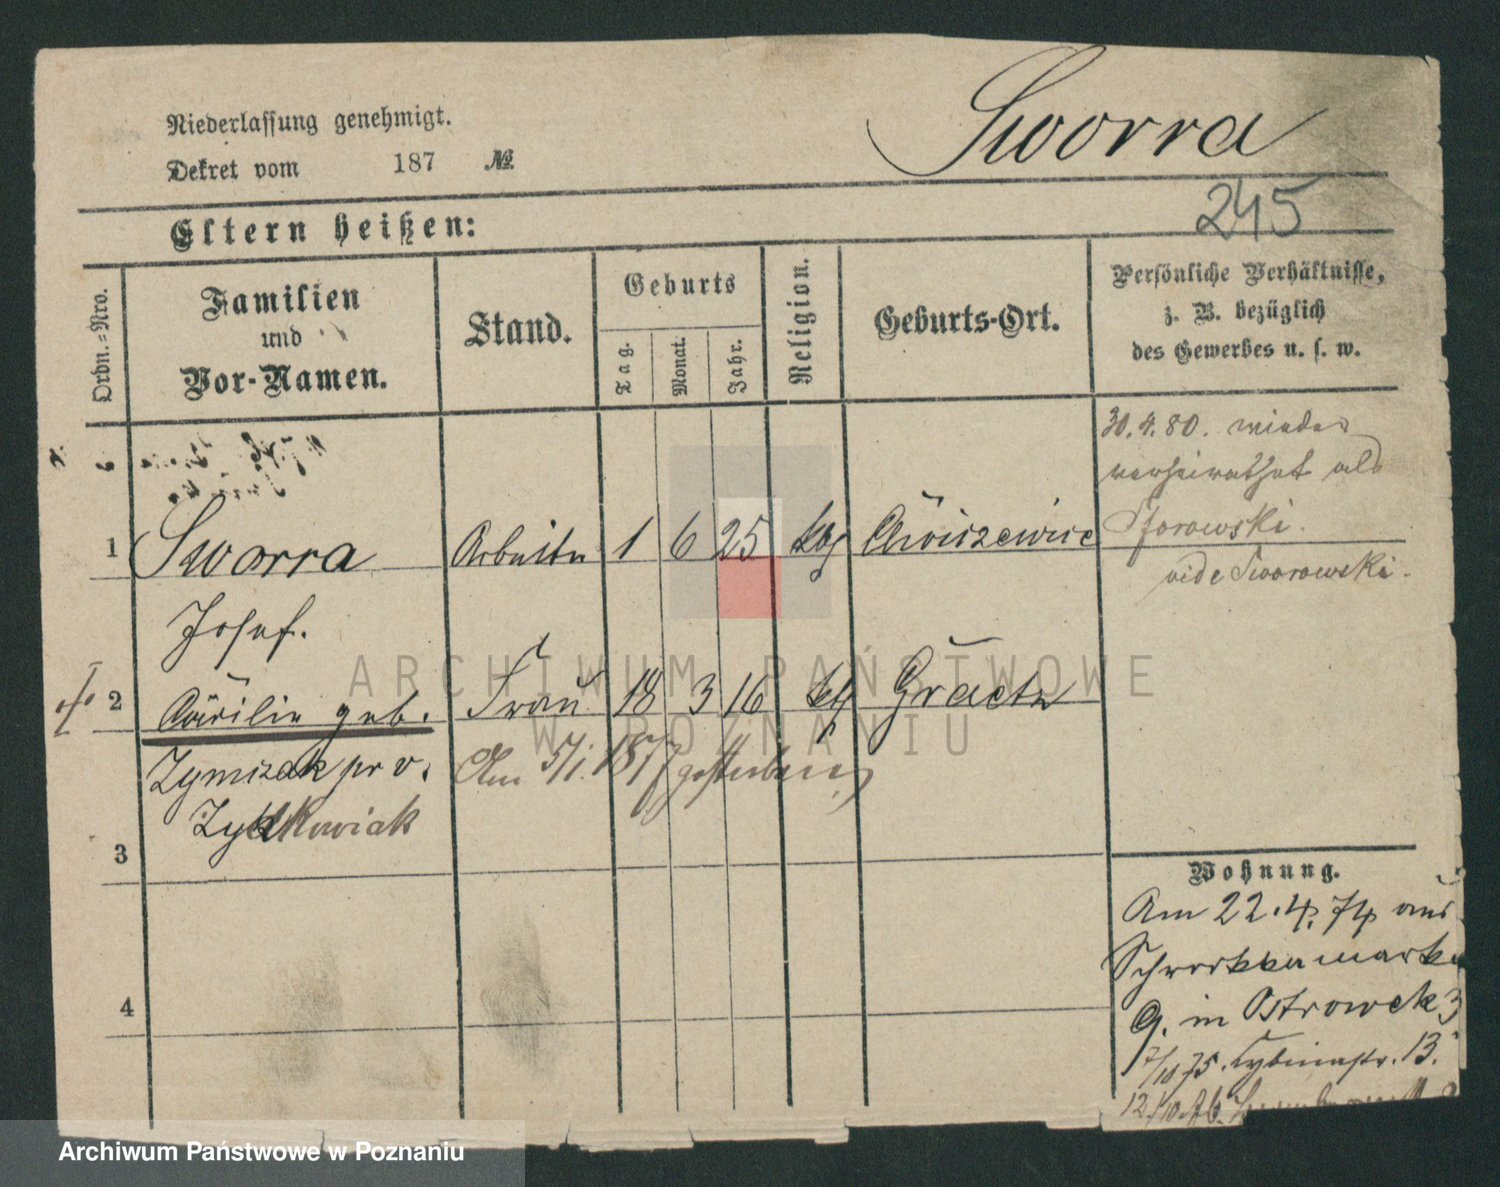 Niederlassung genehmigt.
Dekret vom 187 №
Sworra
245
Eltern heißen:
Ordn.-Nro.
Familien
und
Vor-Namen.
Stand.
Geburts
Tag.
Monat.
Jahr.
Religion.
Geburts-Ort.
Persönliche Verhältnisse,
z. B. bezüglich
des Gewerbes u. s. w.
30.4.80. wieder
verheirathet als
Sworowski.
vide Sworowski.
1 Sworra Arbeiter 1 6 25 kth
Josef.
2 Cäcilie geb. Frau 18 3 16 kth Graetz
Zymizak pr v. Am 5/1. 1877 gestorben
Zydkowiak
3
4
Wohnung.
Am 22.4.74 aus
9. in Ostrowek 3
7/10 75. Cybinastr. 13.
12/10
ARCHIWUM PAŃSTWOWE
W POZNANIU
Archiwum Państwowe w Poznaniu